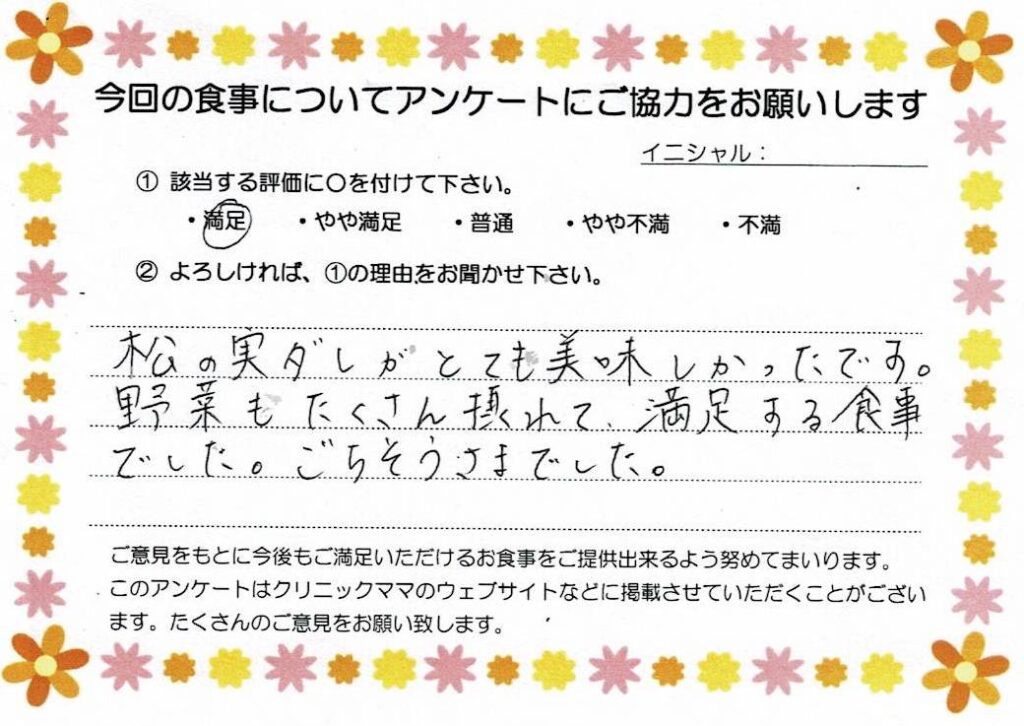 今回の食事についてアンケートにご協力をお願いします
イニシャル：
① 該当する評価に〇を付けて下さい。
・満足 ・やや満足 ・普通 ・やや不満 ・不満
② よろしければ、①の理由をお聞かせ下さい。
松の実ダレがとても美味しかったです。
野菜もたくさん摂れて、満足する食事
でした。ごちそうさまでした。
ご意見をもとに今後もご満足いただけるお食事をご提供出来るよう努めてまいります。
このアンケートはクリニックママのウェブサイトなどに掲載させていただくことがござい
ます。たくさんのご意見をお願い致します。